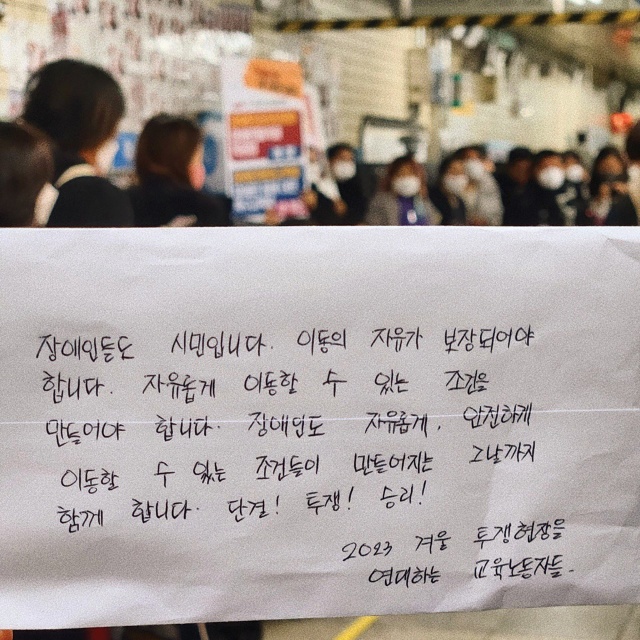 장애인들도 시민입니다. 이동의 자유가 보장되어야
합니다. 자유롭게 이동할 수 있는 조건을
만들어야 합니다. 장애인도 자유롭게, 안전하게
이동할 수 있는 조건들이 만들어지는 그날까지
함께 합니다. 단결! 투쟁! 승리!
2023 겨울 투쟁현장을
연대하는 교육노동자들.